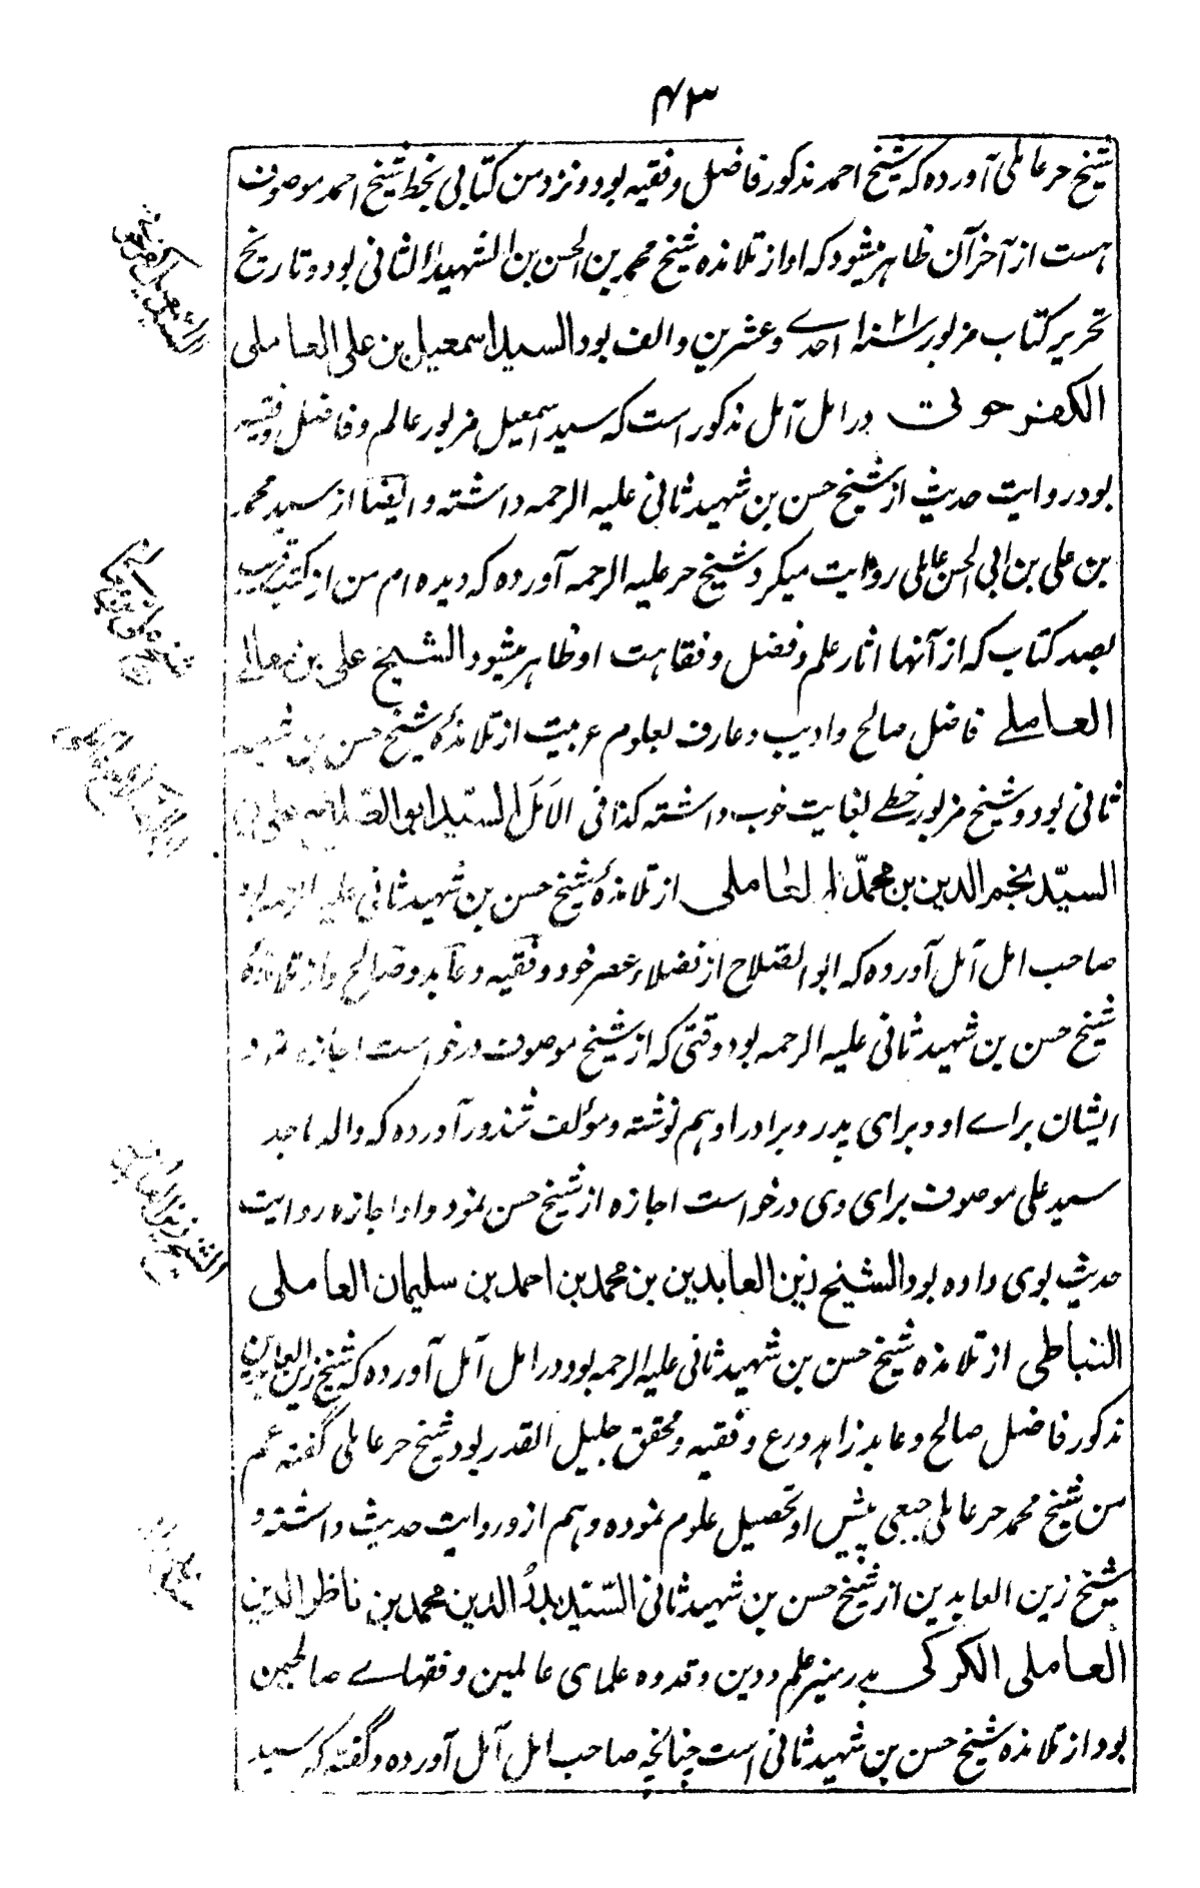 ۴۳
شیخ حر عاملی آورده که شیخ احمد مذکور فاضل و فقیه بود و نزد من کتابی بخط شیخ احمد موصوف
هست از آخر آن ظاهر میشود که او از تلامذه شیخ محمد بن الحسن بن الشهید الثانی بود و تاریخ
تحریر کتاب مزبور سنه ۱۰۲۱ احدے و عشرین و الف بود السید اسمعیل بن علی العاملی
الکفرحونی در امل آمل مذکور است که سید اسمعیل مزبور عالم و فاضل و فقیه
بود روایت حدیث از شیخ حسن بن شهید ثانی علیه الرحمه داشته و ایضا از سید محمد
بن علی بن ابی الحسن عاملی روایت میکرد شیخ حر علیه الرحمه آورده که دیده ام من از کتب قریب
بصد کتاب که از آنها اثار علم و فضل و فقاهت او ظاهر میشود الشیخ علی بن معالی
العاملے فاضل صالح و ادیب و عارف بعلوم عربیت از تلامذهٔ شیخ حسن بن شهید
ثانی بود و شیخ مزبور خطے بغایت خوب داشته کذا فی الاَمَل السیّد ابو الصلاح علی بن
السیّد نجم الدین بن محمّد العاملی از تلامذهٔ شیخ حسن بن شهید ثانی علیه الرحمه بود
صاحب امل آمل آورده که ابو الصلاح از فضلاء عصر خود و فقیه و عابد و صالح و از تلامذهٔ
شیخ حسن بن شهید ثانی علیه الرحمه بود وقتی که از شیخ موصوف درخواست اجازه نمود
ایشان براے او و برای پدر و برادر او هم نوشته و مؤلف شذور آورده که والد ماجد
سید علی موصوف برای وی درخواست اجازه از شیخ حسن نمود و او اجازه روایت
حدیث بوی داده بود الشیخ زین العابدین بن محمد بن احمد بن سلیمان العاملی
النباطی از تلامذه شیخ حسن بن شهید ثانی علیه الرحمه بود در امل آمل آورده که شیخ زین العابدین
مذکور فاضل صالح و عابد زاهد ورع و فقیه و محقق جلیل القدر بود شیخ حر عاملی گفته عم
من شیخ محمد حر عاملی جبعی پیش او تحصیل علوم نموده و هم از و روایت حدیث داشته و
شیخ زین العابدین از شیخ حسن بن شهید ثانی السّیّد بدرُ الدین محمد بن ناظر الدین
العاملی الکرکی بدر منیر علم و دین و قدوه علمای عالمین و فقهاے صالحین
بود از تلامذه شیخ حسن بن شهید ثانی است چنانچه صاحب امل آمل آورده و گفته که سید